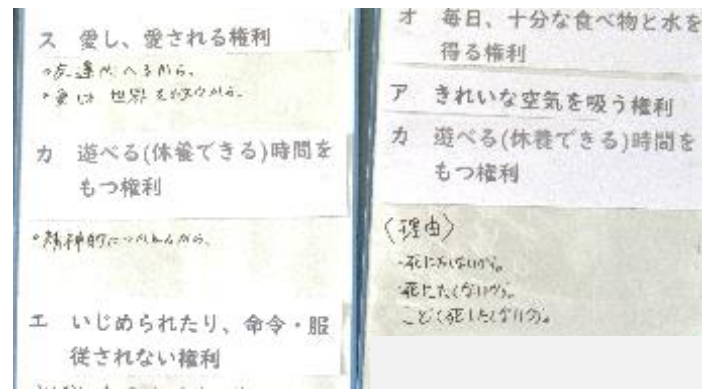 ス 愛し、愛される権利
・友達がへるから。
・愛は世界を救うから。
カ 遊べる(休養できる)時間を
もつ権利
・精神的につかれるから。
エ いじめられたり、命令・服
従されない権利
オ 毎日、十分な食べ物と水を
得る権利
ア きれいな空気を吸う権利
カ 遊べる(休養できる)時間を
もつ権利
〈理由〉
・死にたくないから。
・死にたくないから。
こどく死したくないから。